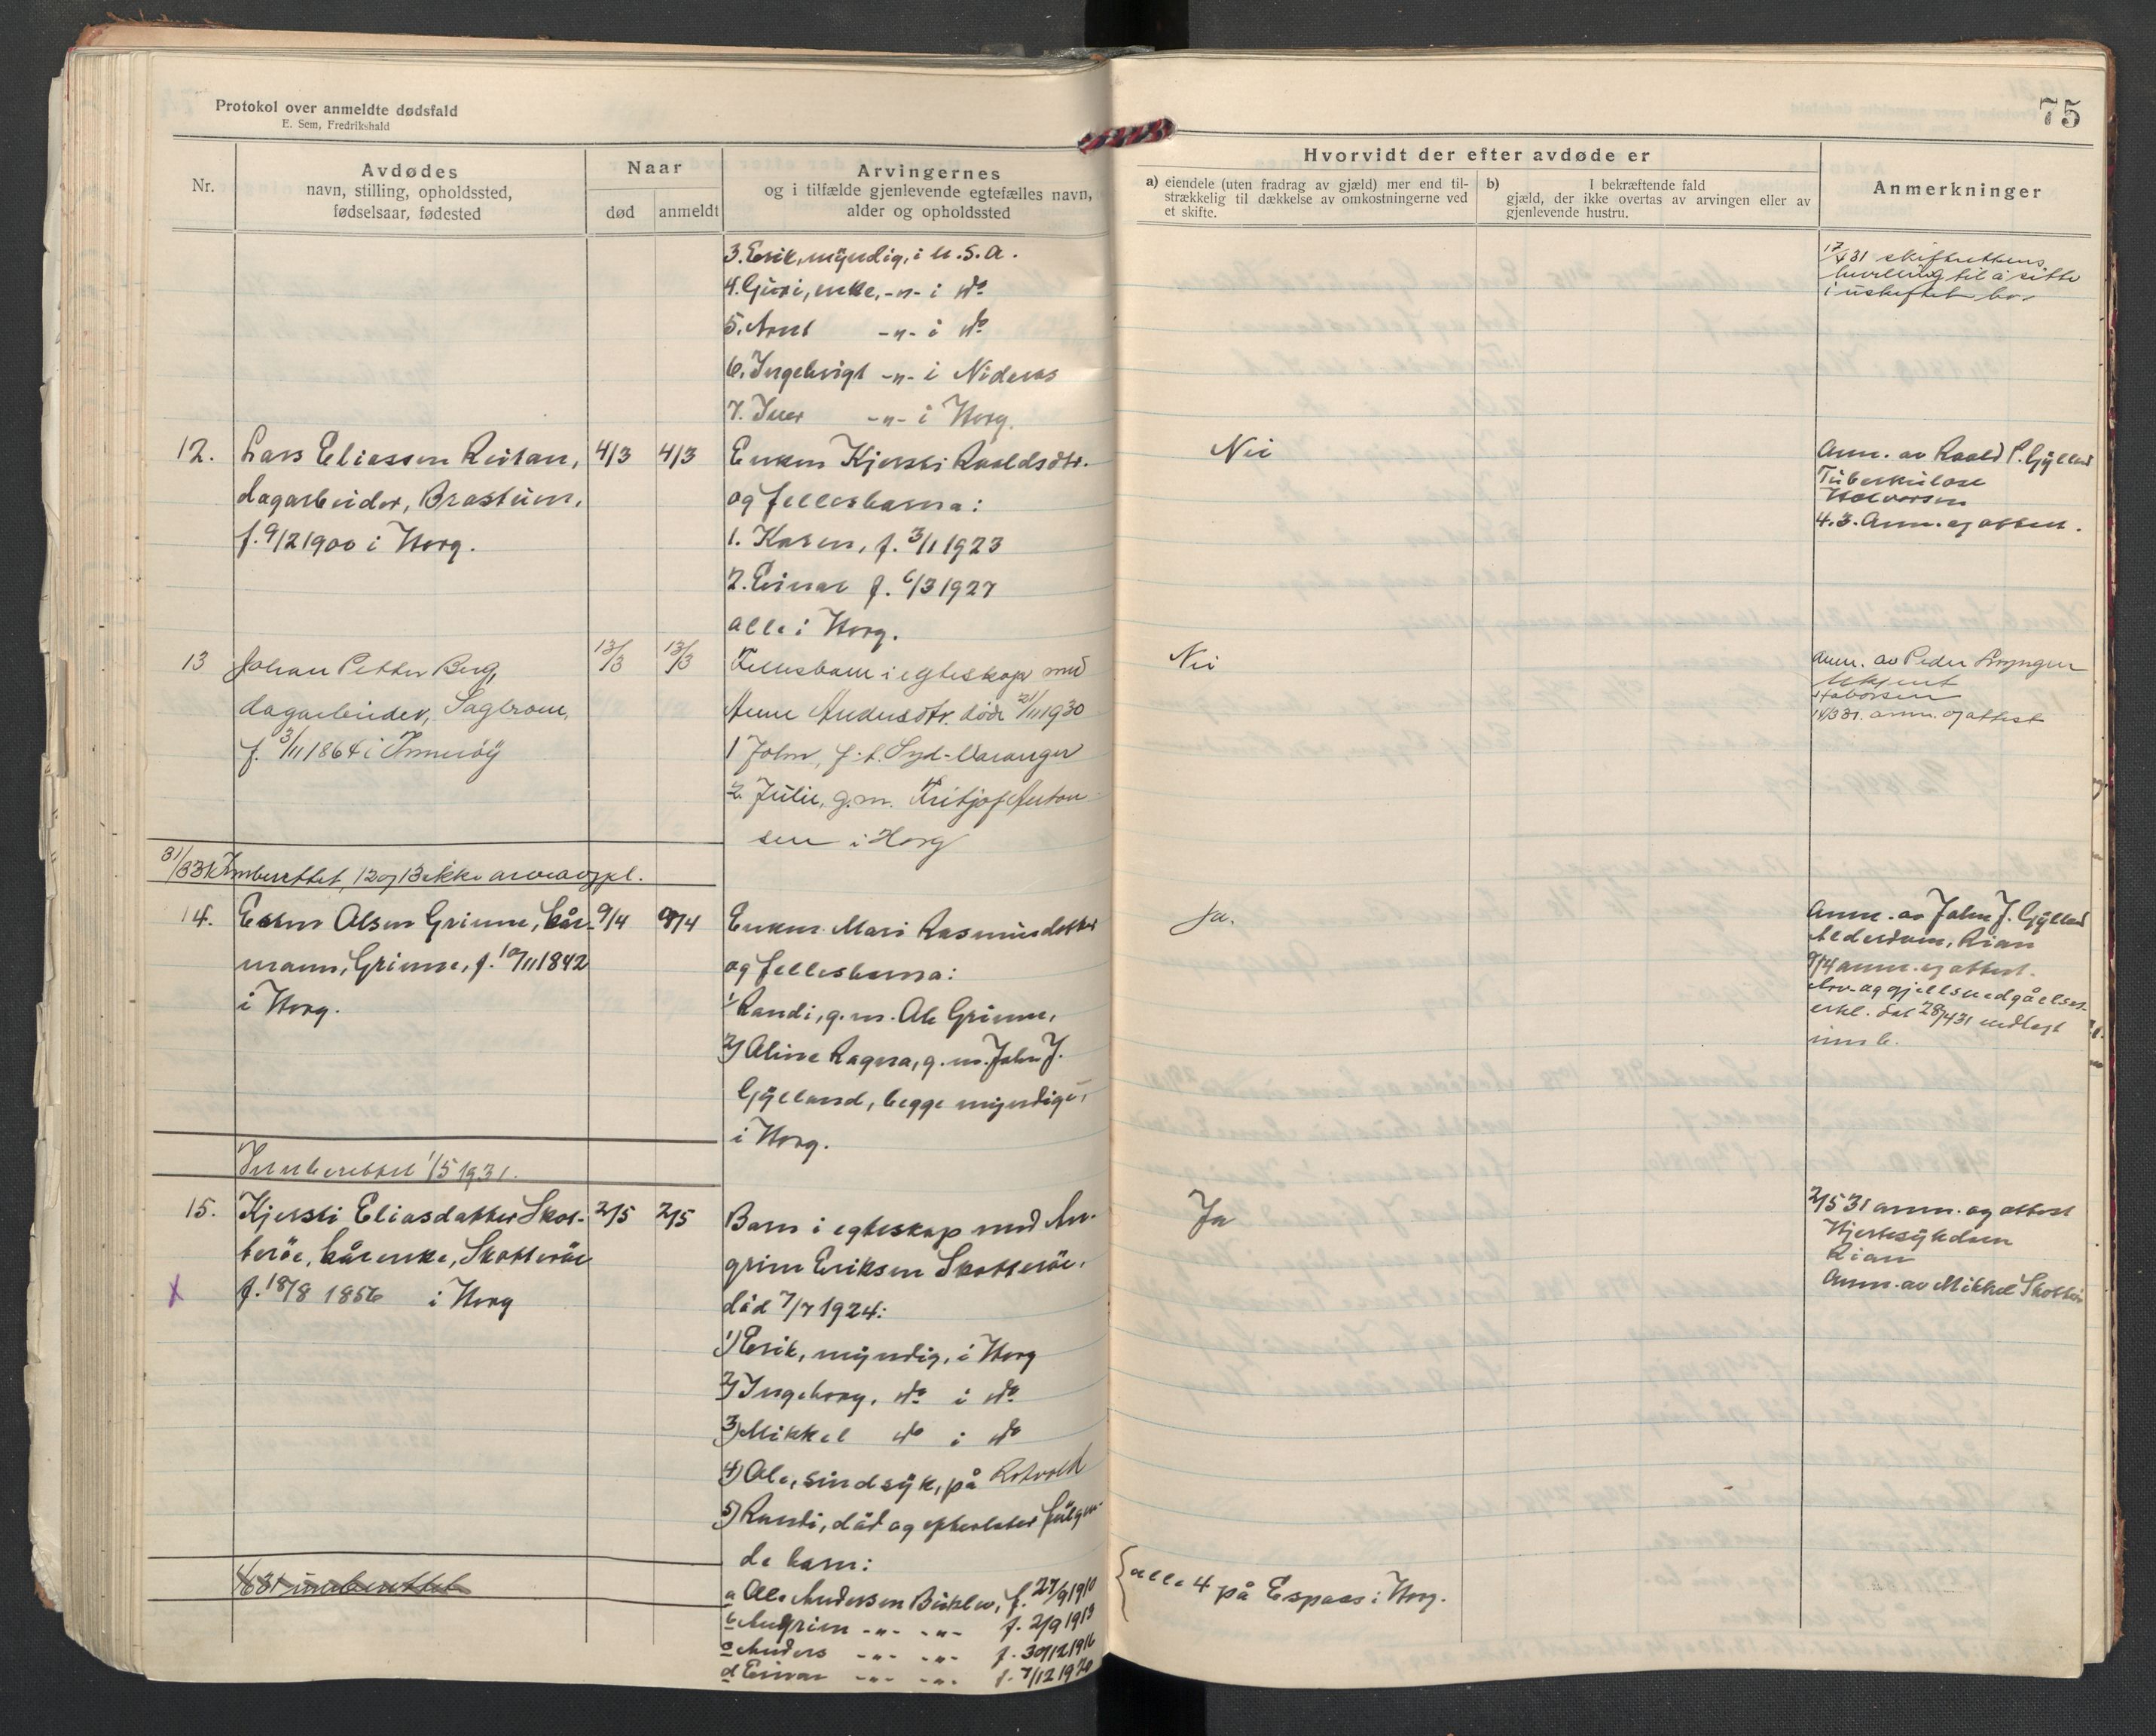 Protokol over anmeldte dødsfald
E. Sem, Fredrikshald
75
Nr.
Avdødes
navn, stilling, opholdssted,
fødselsaar, fødested
Naar
død
anmeldt
Arvingernes
og i tilfælde gjenlevende egtefælles navn,
alder og opholdssted
Hvorvidt der efter avdøde er
a) eiendele (uten fradrag av gjæld) mer end til-
strækkelig til dækkelse av omkostningerne ved
et skifte.
b) I bekræftende fald
gjæld, der ikke overtas av arvingen eller av
gjenlevende hustru.
Anmerkninger
3. Erik, myndig, i U.S.A.
4. Guri, enke, -"- i do
5. Arnt -"- i do
6. Ingebrigt -"- i Nidaros
7. Iver -"- i Horg.
31 skifterettens
bevilling til å sitte
i uskiftet bo.
12.
Lars Eliassen Reitan,
dagarbeider, Brastuen,
f. 9/2 1900 i Horg.
4/3
4/3
Enken Kjersti Roaldsdtr.
og fellesbarna:
1. Karen, f. 3/11 1923
2. Einar f. 6/3 1927
alle i Horg.
Nei
Anm. av Roald P. Gylland
Tuberkulose
Halvorsen
4.3. Anm. og attest.
13
Johan Petter Berg,
dagarbeider, Sagbroen,
f. 3/11 1864 i Inderøy
13/3
13/3
Fellesbarn i egteskap med
Anne Andersdtr. død 21/11 1930
1 John, f.t. Syd-Varanger
2. Julie, g.m. Fritjof Anton-
sen i Horg
Nei
Anm. av Peder
Ukjent
Halvorsen
14/3 31. anm. og attest
31/3 31 Innberettet, 12 og 13 ikke arveavgpl.
14.
Esten Olsen Grinne, kår-
mann, Grinne, f. 10/11 1842
i Horg.
9/4
9/4
Enken Mari Rasmusdatter
og fellesbarna:
1) Randi, g.m. Ole Grinne,
2) Oline Ragna, g.m. John J.
Gylland, begge myndige,
i Horg.
Ja.
Anm. av John J. Gylland
Alderdom, Rian
9/4 anm. og attest.
Arv- og gjeldsvedgåelses-
erkl. dat 28/4 31 vedlagt
innb.
Innberettet 1/5 1931.
15.
Kjersti Eliasdatter Skot-
terøe, kårenke, Skotterøe
f. 18/8 1856 i Horg
X
2/5
2/5
Barn i egteskap med An-
grim Eriksen Skotterøe,
død 7/7 1924:
1) Erik, myndig, i Horg
2) Ingeborg, do i do
3) Mikkel do i do
4) Ole, sindsyk, på Rotvold
5) Randi, død og efterlater følgen-
de barn:
a Ole Andersen f. 27/9 1910
b Angrim -"- -"- f. 2/9 1913
c Anders -"- -"- f. 30/12 1916
d Einar -"- -"- f. 7/12 1920
alle 4 på Espaas i Horg.
Ja
2/5 31 anm. og attest
Hjertesykdom
Rian
Anm. av Mikkel Skotterøe
1/6 31 innberettet